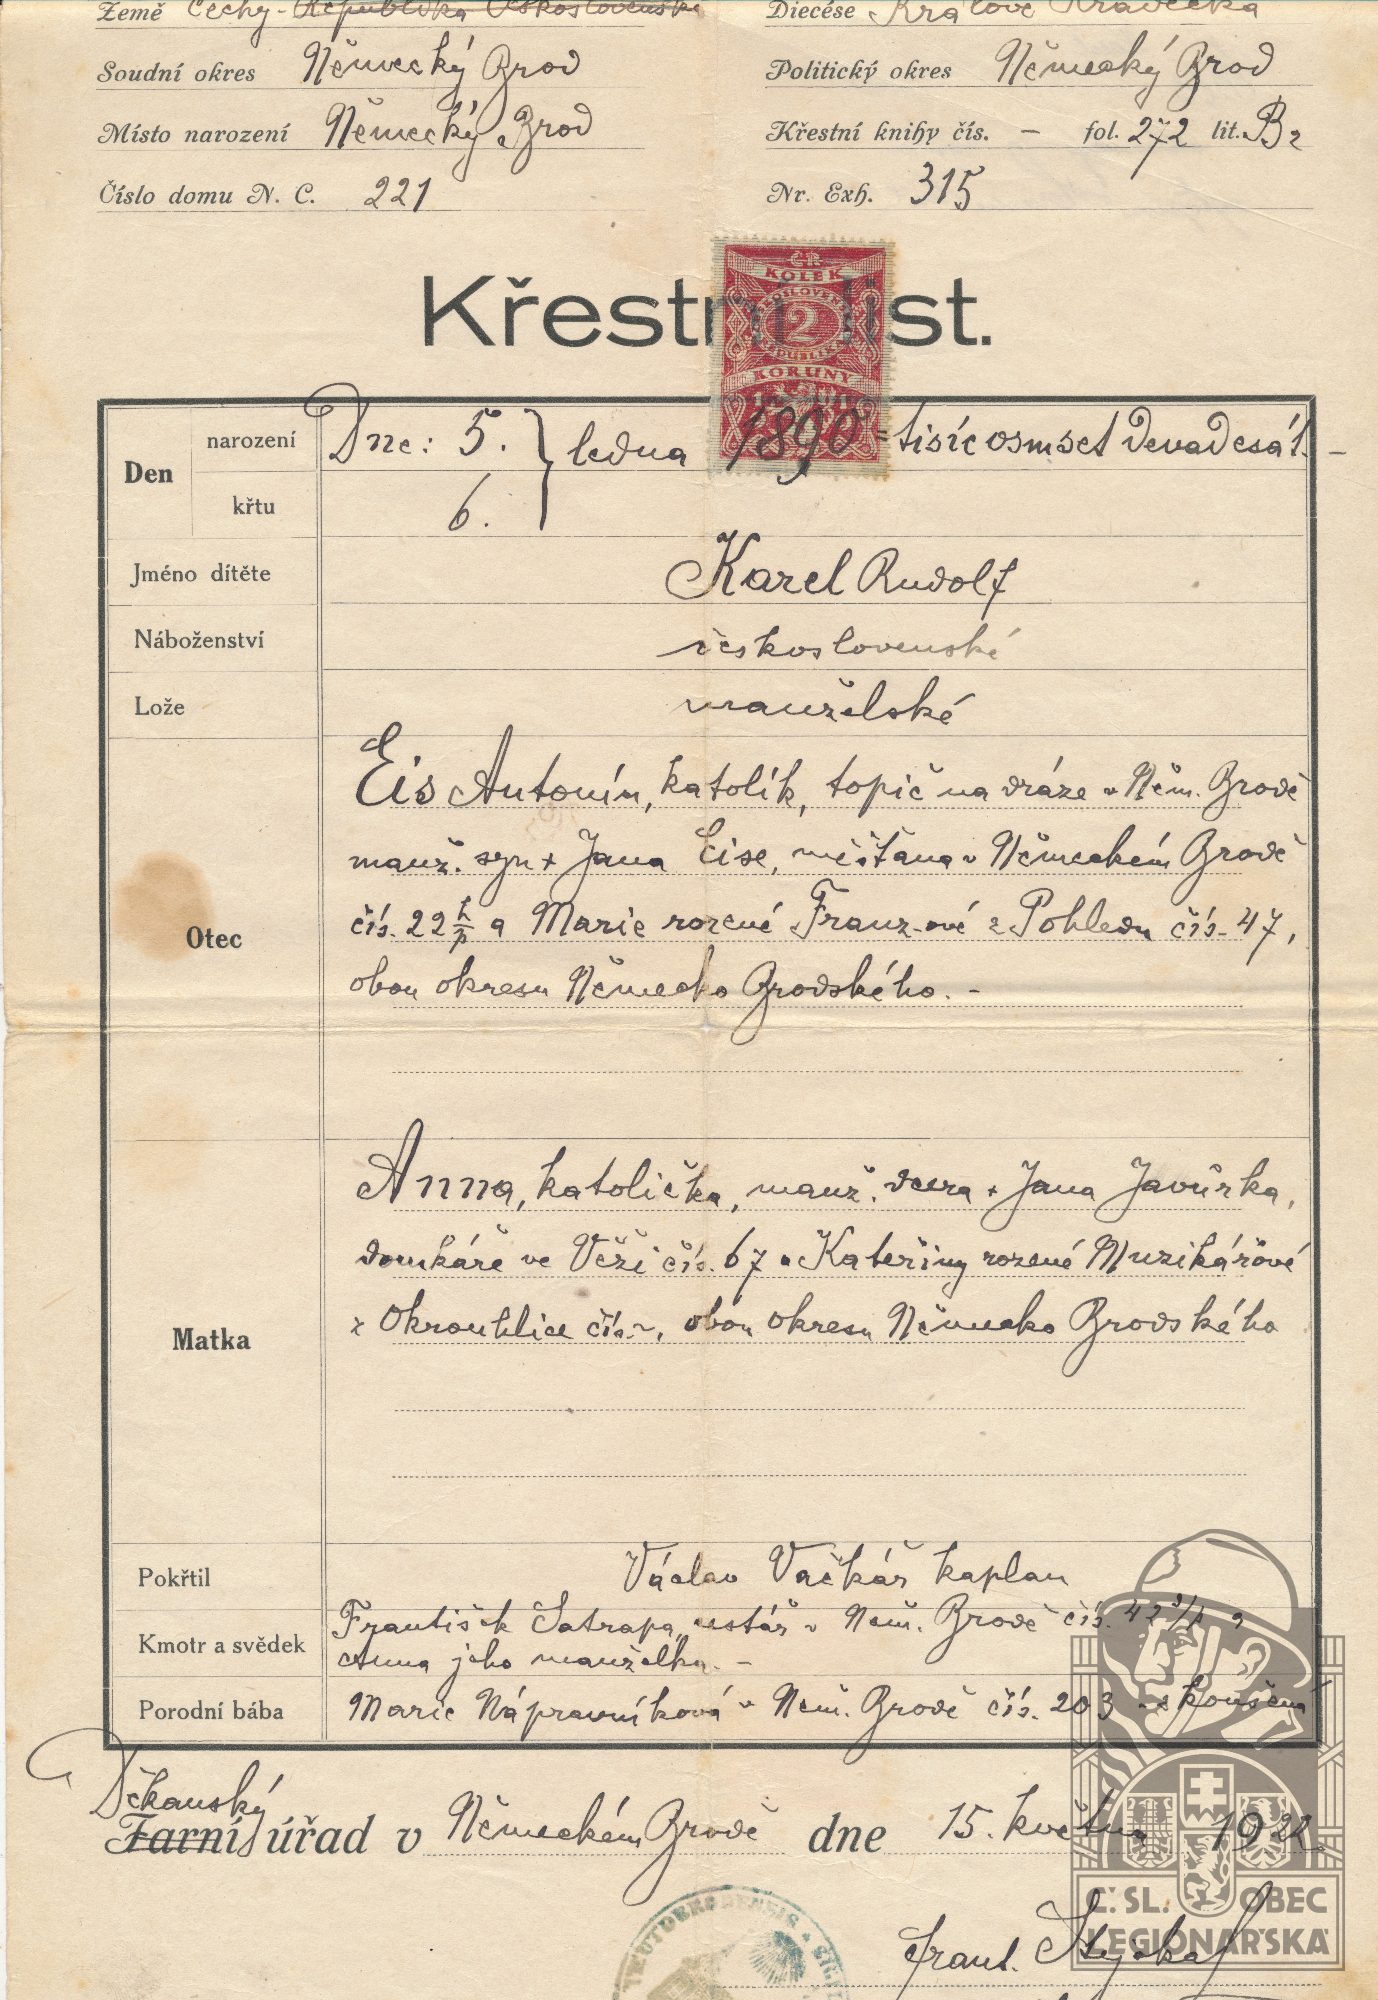 Země Čechy - Republika Československá Diecése Králové Hradecká
Soudní okres Německý Brod Politický okres Německý Brod
Místo narození Německý Brod Křestní knihy čís. — fol. 272 lit. B2
Číslo domu N. C. 221 Nr. Exh. 315
Křestní list.
ČR
KOLEK
2
KORUNY
Den narození Dne: 5. } ledna 1890 = tisíc osmset devadesát. —
křtu 6.
Jméno dítěte Karel Rudolf
Náboženství československé
Lože manželské
Otec
Eis Antonín, katolík, topič na dráze v Něm. Brodě
manž. syn + Jana Eise, měšťana v Německém Brodě
čís. 22 a Marie rozené Franz-ové z Pohledu čís. 47,
obou okresu Německo Brodského. —
Matka
Anna, katolička, manž. dcera + Jana Javůrka,
domkáře ve Věži čís. 67 a Kateřiny rozené Muzikářové
z Okrouhlice čís. -, obou okresu Německo Brodského
Pokřtil Václav Vačkář kaplan
Kmotr a svědek František Satrapa, v Něm. Brodě čís. 42
Anna jeho manželka. —
Porodní bába Marie Nápravníková v Něm. Brodě čís. 203 - zkoušená
Děkanský
Farní úřad v Německém Brodě dne 15. května 1922.
Č. SL. OBEC
LEGIONÁŘSKÁ
Frant.